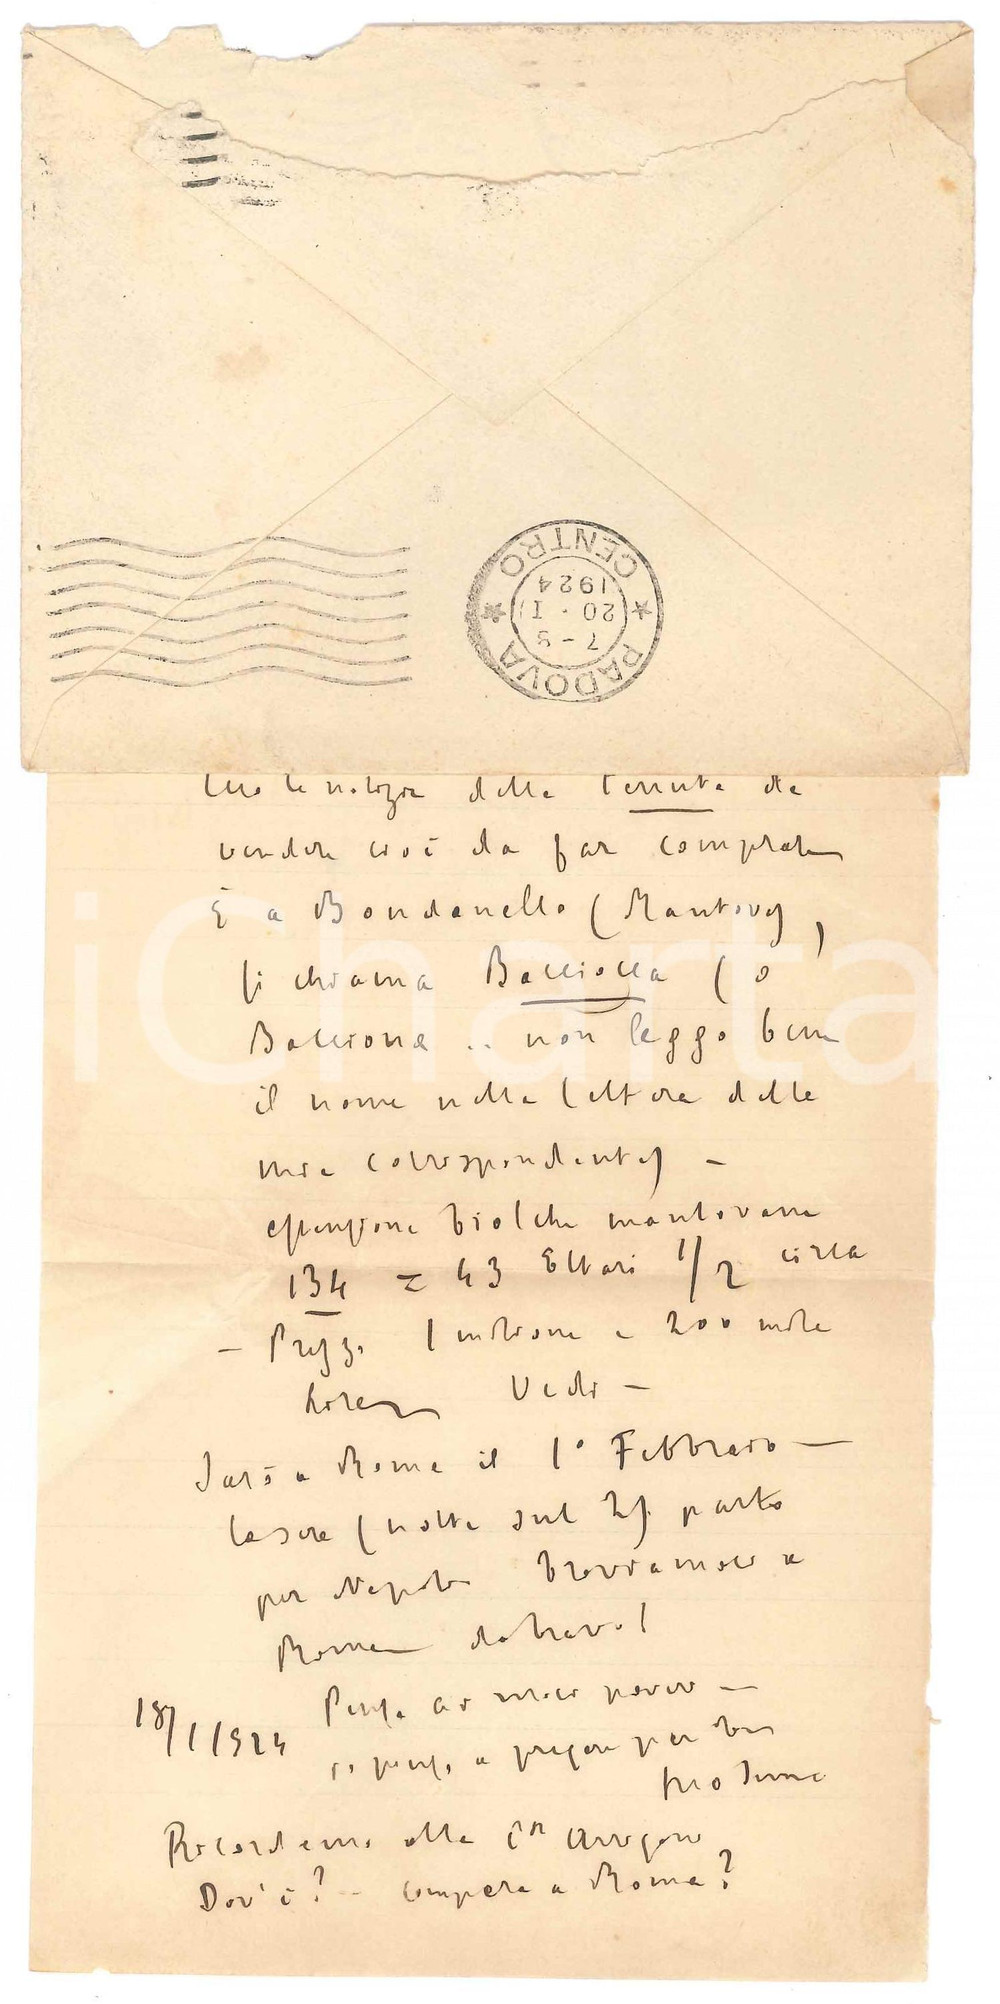 PADOVA CENTRO
7-8
20·I
1924
notizia della tenuta da
vendere cioè da far comprare
È a Bondanello (Mantova),
si chiama Bacciocca (o
Baccione .. non leggo bene
il nome nella lettera della
mia corrispondente) —
estensione biolche mantovane
134 = 43 Ettari 1/2 circa
— Prezzo 1 milione e 200 mila
Lire Vedi —
Sarò a Roma il 1° Febbraio —
la sera (notte sul 2) parto
per Napoli Troviamoci a
Roma
Pensa ai miei poveri —
18/1/1924
io penso a pregare per te
tuo
Ricordami alla
Dov'è? — compera a Roma?
iCharta